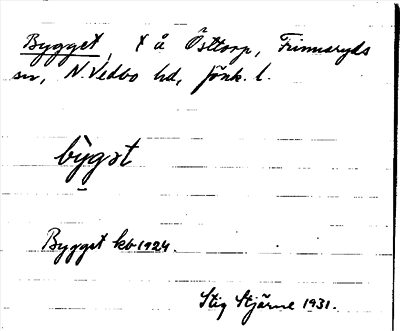 Bygget, t å Östtorp, Frinnaryds
sn, N. Vedbo hd, Jönk. l.
by̲gət
Bygget kb 1924.
Stig Stjärne 1931.